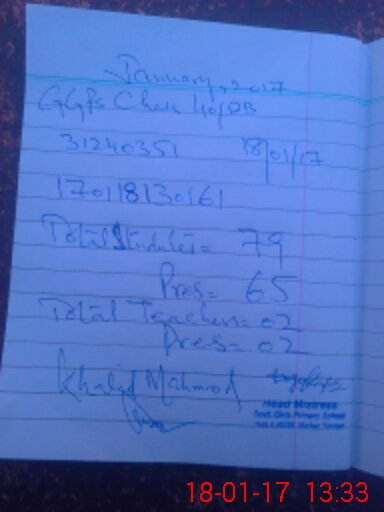 January, 2017
GGPS Chak 40/DB
31240351 18/01/17
170118130161
Total Students = 79
Pres = 65
Total Teachers = 02
Pres = 02
Khalid Mahmood
Head Mistress
Govt. Girls Primary School
18-01-17 13:33